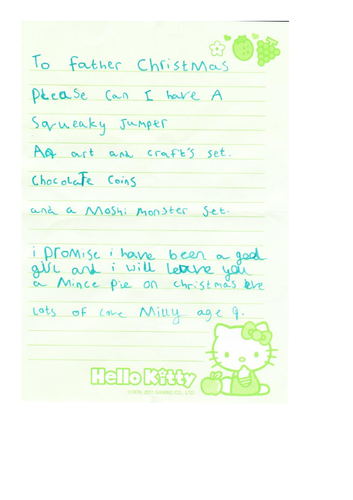 To Father Christmas
Please can I have A
Squeaky Jumper
art and craft's set.
Chocolate Coins
and a Moshi monster set.
i promise i have been a good
girl and i will leave you
a Mince Pie on christmas Eve
Lots of love Milly age 9.
Hello Kitty
SANRIO CO., LTD.